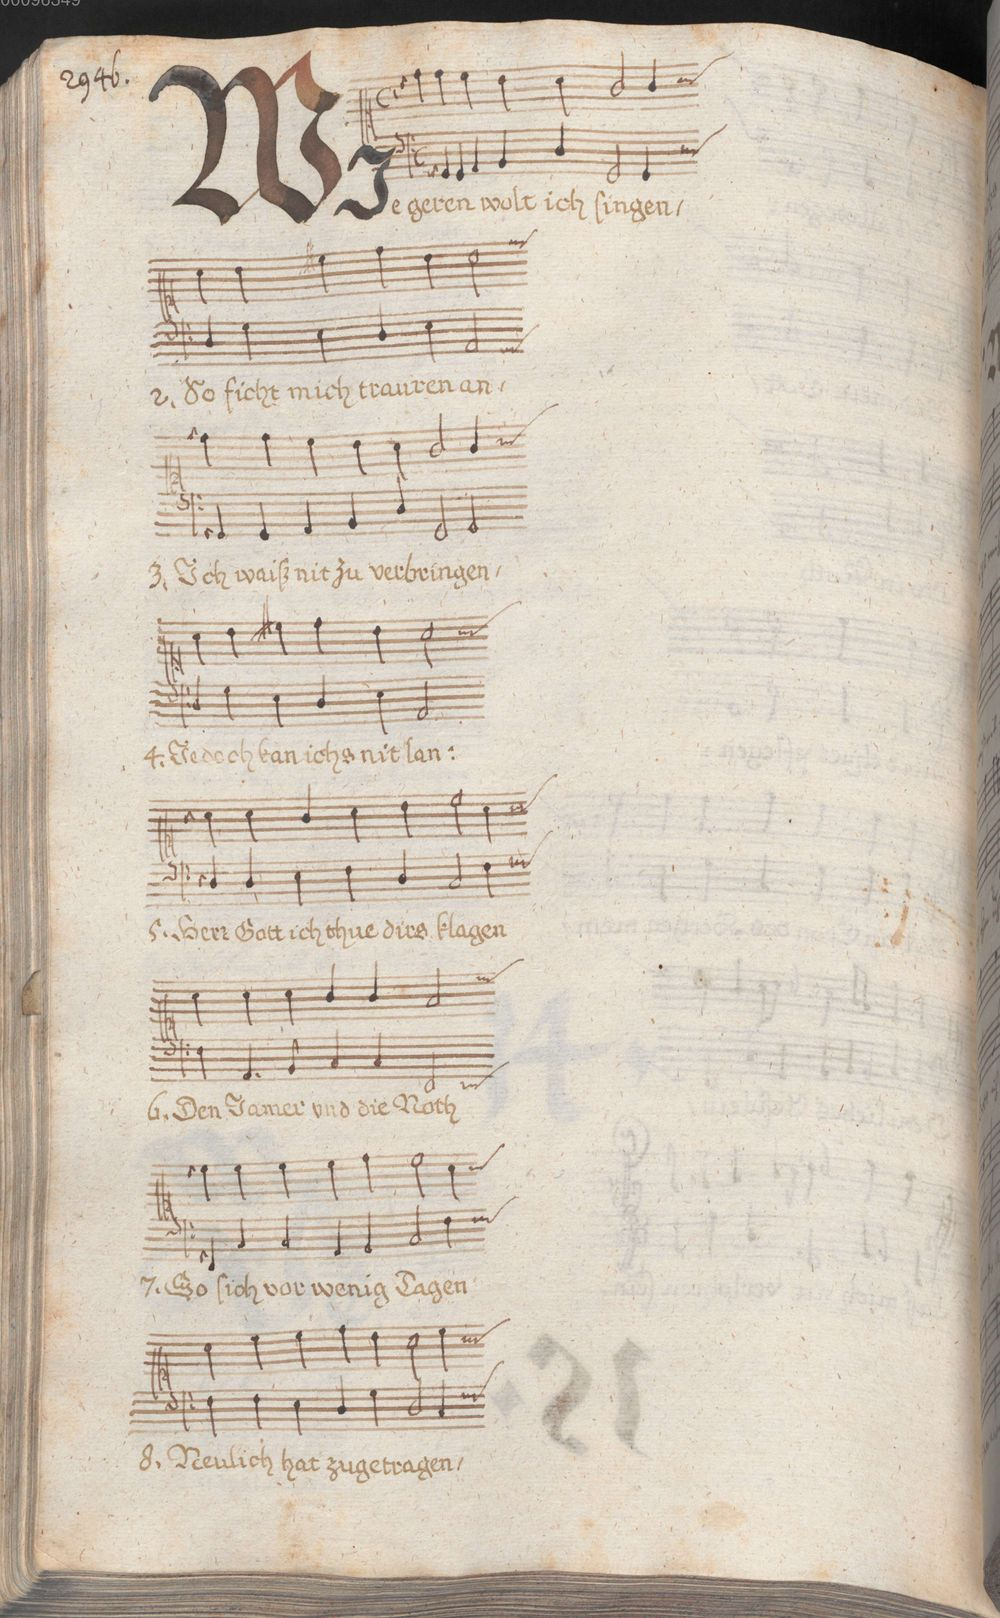 00096349
2946.
WIe geren wolt ich singen/
2. So ficht mich trauren an/
3. Ich waiß nit zu verbringen/
4. Jedoch kan ichs nit lan:
5. Herr Gott ich thue dirs klagen
6. Den Jamer vnd die Noth
7. So sich vor wenig Tagen
8. Neulich hat zugetragen/